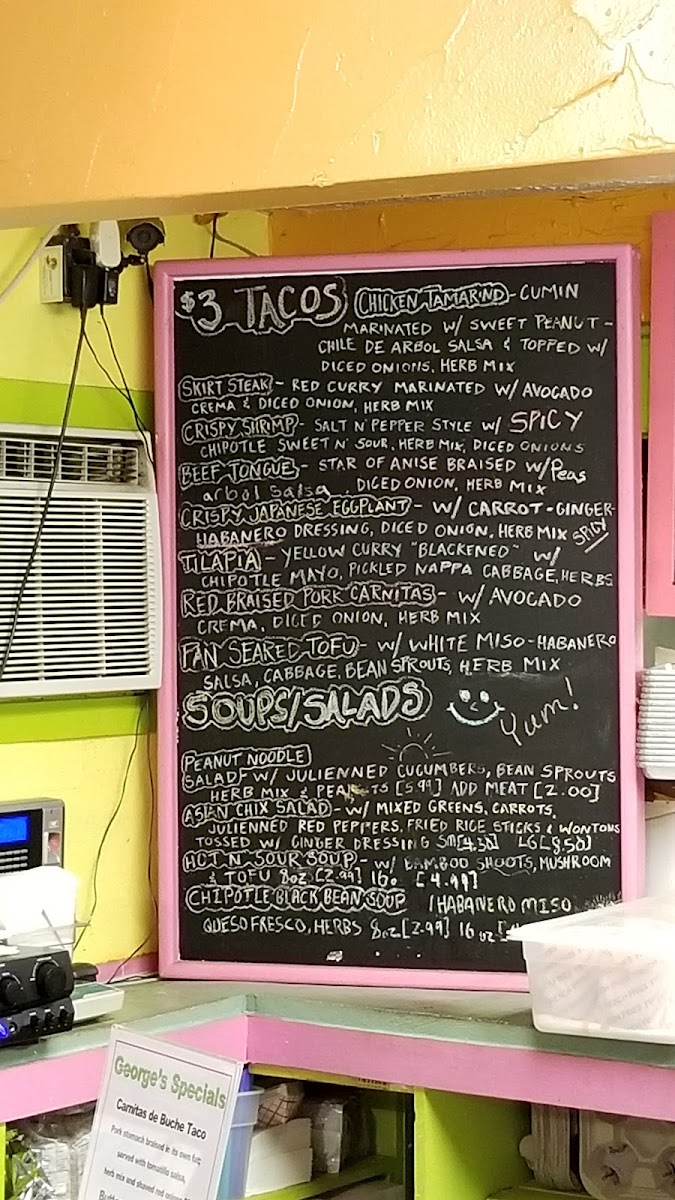 $3 TACOS CHICKEN TAMARIND - CUMIN
MARINATED W/ SWEET PEANUT -
CHILE DE ARBOL SALSA & TOPPED W/
DICED ONIONS, HERB MIX
SKIRT STEAK - RED CURRY MARINATED W/ AVOCADO
CREMA & DICED ONION, HERB MIX
CRISPY SHRIMP - SALT N' PEPPER STYLE W/ SPICY
CHIPOTLE SWEET N' SOUR, HERB MIX, DICED ONIONS
BEEF TONGUE - STAR OF ANISE BRAISED W/ Peas
arbol salsa DICED ONION, HERB MIX
CRISPY JAPANESE EGGPLANT - W/ CARROT-GINGER-
HABANERO DRESSING, DICED ONION, HERB MIX SPICY
TILAPIA - YELLOW CURRY "BLACKENED" W/
CHIPOTLE MAYO, PICKLED NAPPA CABBAGE, HERBS
RED BRAISED PORK CARNITAS - W/ AVOCADO
CREMA, DICED ONION, HERB MIX
PAN SEARED TOFU - W/ WHITE MISO-HABANERO
SALSA, CABBAGE, BEAN SPROUTS, HERB MIX
SOUPS/SALADS Yum!
PEANUT NOODLE
SALAD W/ JULIENNED CUCUMBERS, BEAN SPROUTS
HERB MIX & [5.99] ADD MEAT [2.00]
ASIAN CHIX SALAD - W/ MIXED GREENS, CARROTS,
JULIENNED RED PEPPERS, FRIED RICE STICKS & WONTONS
TOSSED W/ GINGER DRESSING SM[4.50] LG[8.50]
HOT N' SOUR SOUP - W/ BAMBOO SHOOTS, MUSHROOM
& TOFU 8oz [2.99] 16o [4.99]
CHIPOTLE BLACK BEAN SOUP /HABANERO MISO
QUESO FRESCO, HERBS 8oz [2.99] 16oz
George's Specials
Carnitas de Buche Taco
Pork stomach braised in its own fat;
served with tomatillo salsa,
herb mix and shaved red onions